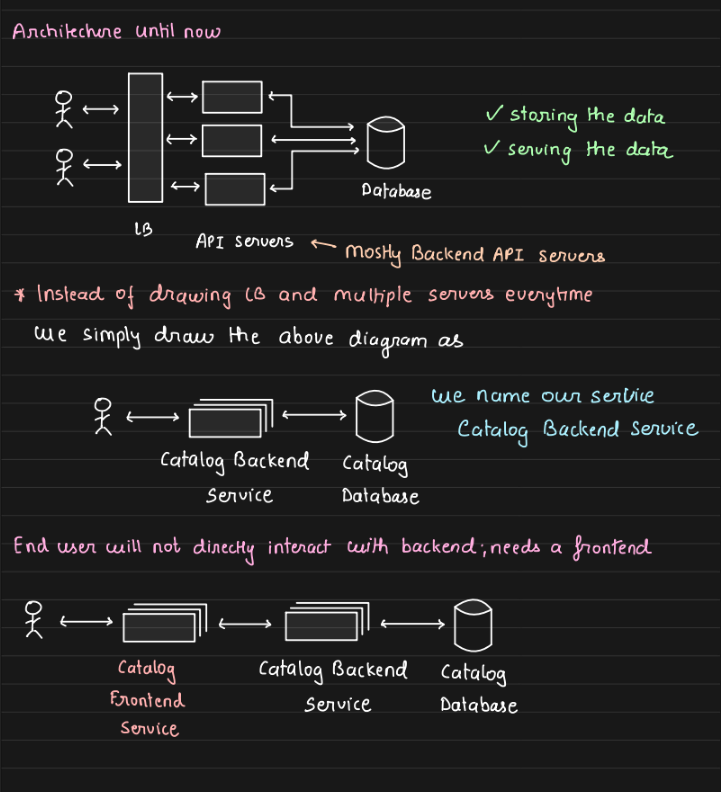 Architecture until now
✓ storing the data
✓ serving the data
Database
LB
API servers ← mostly Backend API servers
* Instead of drawing LB and multiple servers everytime
we simply draw the above diagram as
we name our service
Catalog Backend Service
Catalog Backend
Service
Catalog
Database
End user will not directly interact with backend; needs a frontend
Catalog
Frontend
Service
Catalog Backend
Service
Catalog
Database